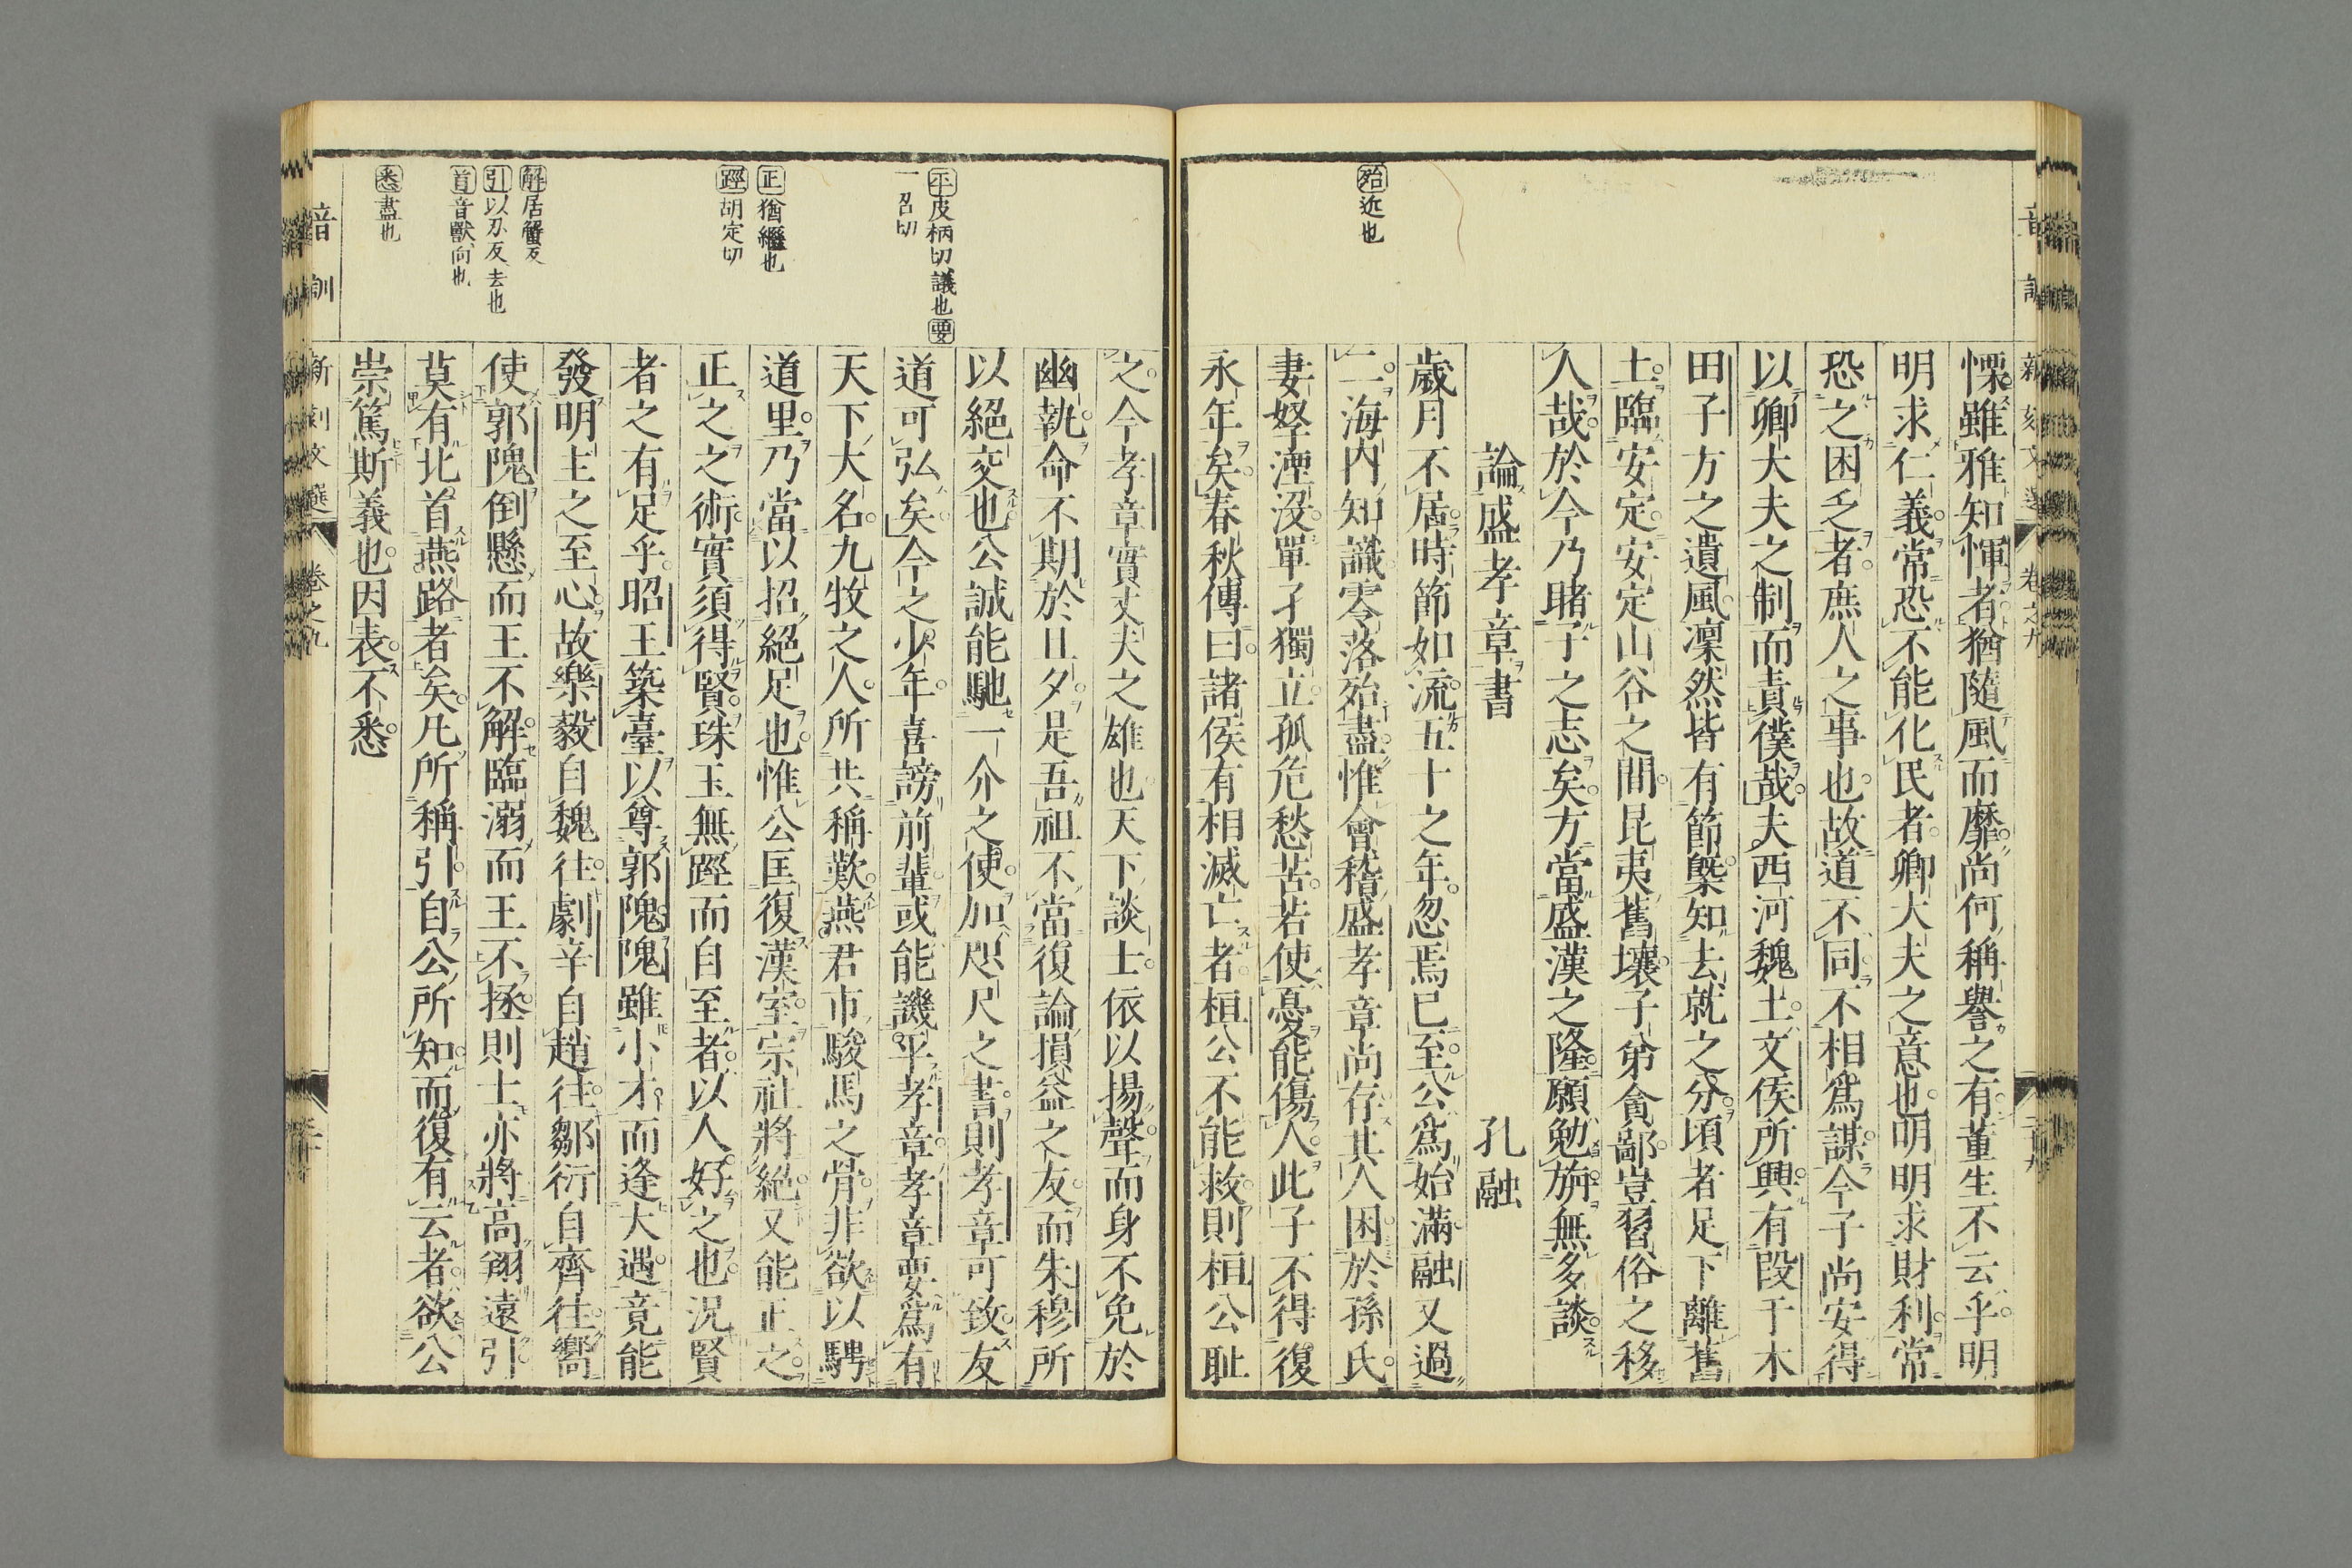 殆近也
慄雖雅知惲者猶隨風而靡尚何稱譽之有董生不云乎明
明求仁義常恐不能化民者卿大夫之意也明明求財利常
恐之困乏者庶人之事也故道不同不相爲謀今子尚安得
以卿大夫之制而責僕哉夫西河魏土文侯所興有段干木
田子方之遺風凜然皆有節槩知去就之分頃者足下離舊
土臨安定安定山谷之間昆夷舊壤子弟貪鄙豈習俗之移
人哉於今乃睹子之志矣方當盛漢之隆願勉旃無多談
論盛孝章書 孔融
歲月不居時節如流五十之年忽焉已至公爲始滿融又過
二海内知識零落殆盡惟會稽盛孝章尚存其人困於孫氏
妻孥湮沒單孑獨立孤危愁苦若使憂能傷人此子不得復
永年矣春秋傳曰諸侯有相滅亡者桓公不能救則桓公恥
平皮柄切議也要
一召切
正猶繼也
踁胡定切
解居蟹反
引以忍反去也
首音獸向也
悉盡也
之今孝章實丈夫之雄也天下談士依以揚聲而身不免於
幽執命不期於旦夕是吾祖不當復論損益之友而朱穆所
以絕交也公誠能馳一介之使加咫尺之書則孝章可致友
道可弘矣今之少年喜謗前輩或能譏平孝章孝章要爲有
天下大名九牧之人所共稱歎燕君市駿馬之骨非欲以騁
道里乃當以招絕足也惟公匡復漢室宗社將絕又能正之
正之之術實須得賢珠玉無踁而自至者以人好之也況賢
者之有足乎昭王築臺以尊郭隗隗雖小才而逢大遇竟能
發明主之至心故樂毅自魏往劇辛自趙往鄒衍自齊往嚮
使郭隗倒懸而王不解臨溺而王不拯則士亦將高翔遠引
莫有北首燕路者矣凡所稱引自公所知而復有云者欲公
崇篤斯義也因表不悉
音訓 新刻文選 卷之九